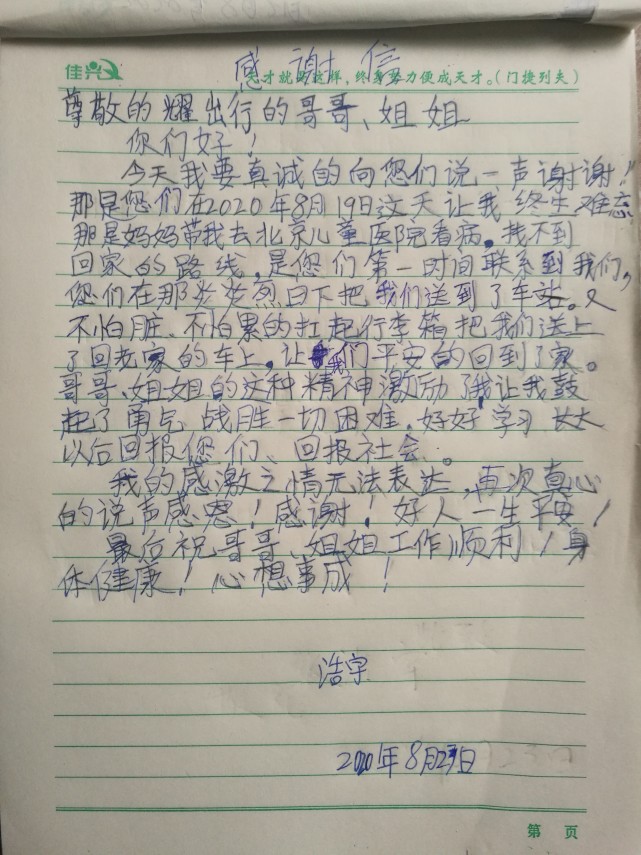 感谢信
佳兴
天才就是这样，终身努力便成天才。（门捷列夫）
尊敬的耀出行的哥哥、姐姐
你们好！
今天我要真诚的向您们说一声谢谢！
那是您们在2020年8月19日这天让我终生难忘
那是妈妈带我去北京儿童医院看病。找不到
回家的路线，是您们第一时间联系到我们，
您们在那炎炎烈日下把我们送到了车站。又
不怕脏、不怕累的扛起行李箱把我们送上
了回我家的车上。让我们平安的回到了家。
哥哥、姐姐的这种精神激励了我让我鼓
起了勇气 战胜一切困难，好好学习 长大
以后回报您们、回报社会。
我的感激之情无法表达，再次真心
的说声感恩！感谢！好人一生平安！
最后祝哥哥、姐姐工作顺利！身
体健康！心想事成！
浩宇
2020年8月23日
第 页